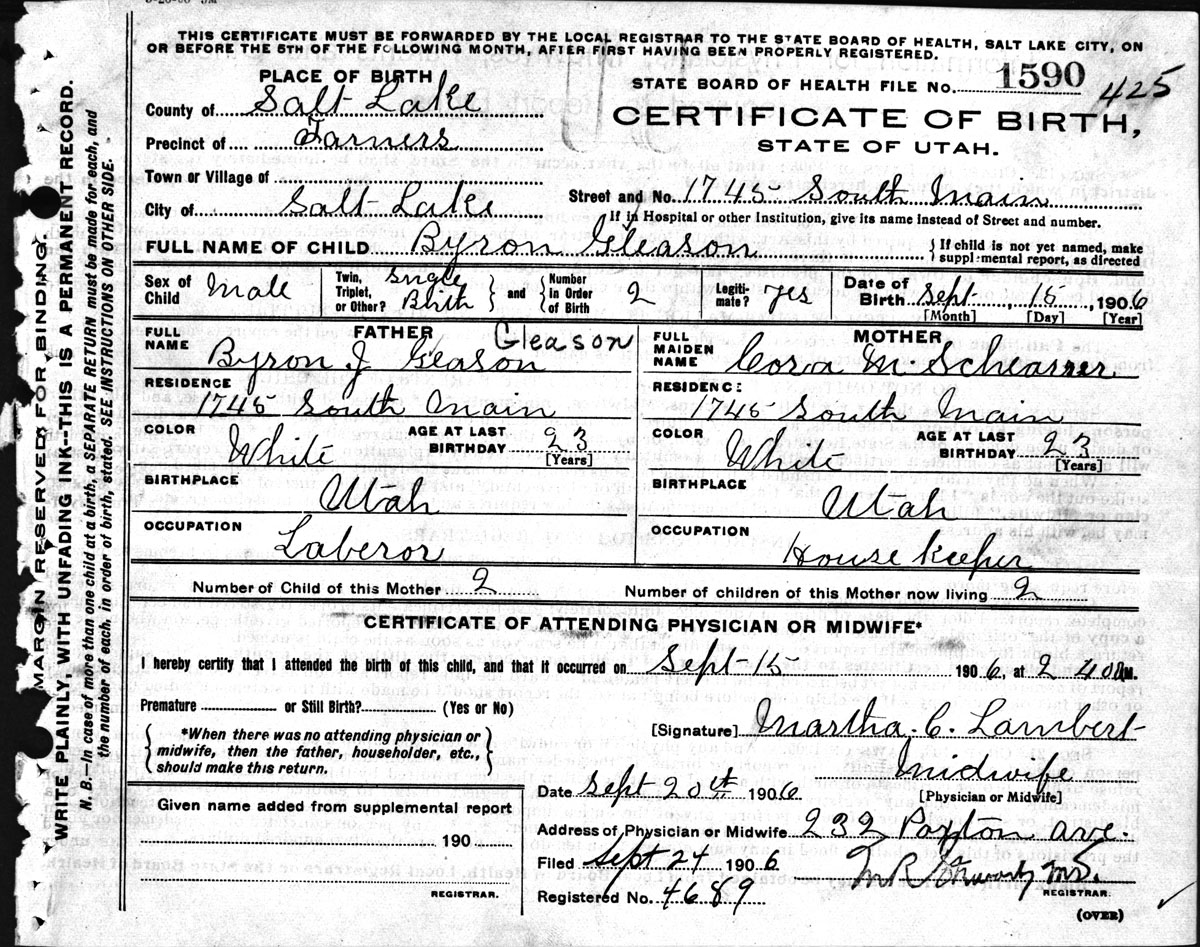 THIS CERTIFICATE MUST BE FORWARDED BY THE LOCAL REGISTRAR TO THE STATE BOARD OF HEALTH, SALT LAKE CITY, ON
OR BEFORE THE 5TH OF THE FOLLOWING MONTH, AFTER FIRST HAVING BEEN PROPERLY REGISTERED.
PLACE OF BIRTH
STATE BOARD OF HEALTH FILE No. 1590 425
County of Salt Lake
CERTIFICATE OF BIRTH,
Precinct of Farmers
STATE OF UTAH.
Town or Village of
Street and No. 1745 South Main
City of Salt Lake
{If in Hospital or other Institution, give its name instead of Street and number.
FULL NAME OF CHILD Byron Gleason
{If child is not yet named, make supplemental report, as directed
Sex of Child Male
Twin, Triplet, or Other? Single Birth
and
Number in Order of Birth 2
Legitimate? Yes
Date of Birth Sept 15, 1906
[Month] [Day] [Year]
FATHER
FULL NAME Byron J Gleason Gleason
MOTHER
FULL MAIDEN NAME Cora M
RESIDENCE
1745 South Main
RESIDENCE
1745 South Main
COLOR White
AGE AT LAST BIRTHDAY 23 [Years]
COLOR White
AGE AT LAST BIRTHDAY 23 [Years]
BIRTHPLACE
Utah
BIRTHPLACE
Utah
OCCUPATION
Laberor
OCCUPATION
House Keeper
Number of Child of this Mother 2
Number of children of this Mother now living 2
CERTIFICATE OF ATTENDING PHYSICIAN OR MIDWIFE*
I hereby certify that I attended the birth of this child, and that it occurred on Sept 15 1906, at 2 40 M.
Premature or Still Birth? (Yes or No)
{*When there was no attending physician or
midwife, then the father, householder, etc.,
should make this return.}
[Signature] Martha. C. Lambert
Midwife
[Physician or Midwife]
Date Sept 20th 1906
Given name added from supplemental report
190
REGISTRAR.
Address of Physician or Midwife 232 Paxton ave.
Filed Sept 24 1906
REGISTRAR.
Registered No. 4689
(OVER)
MARGIN RESERVED FOR BINDING.
WRITE PLAINLY, WITH UNFADING INK--THIS IS A PERMANENT RECORD.
N. B.—In case of more than one child at a birth, a SEPARATE RETURN must be made for each, and
the number of each, in order of birth, stated. SEE INSTRUCTIONS ON OTHER SIDE.